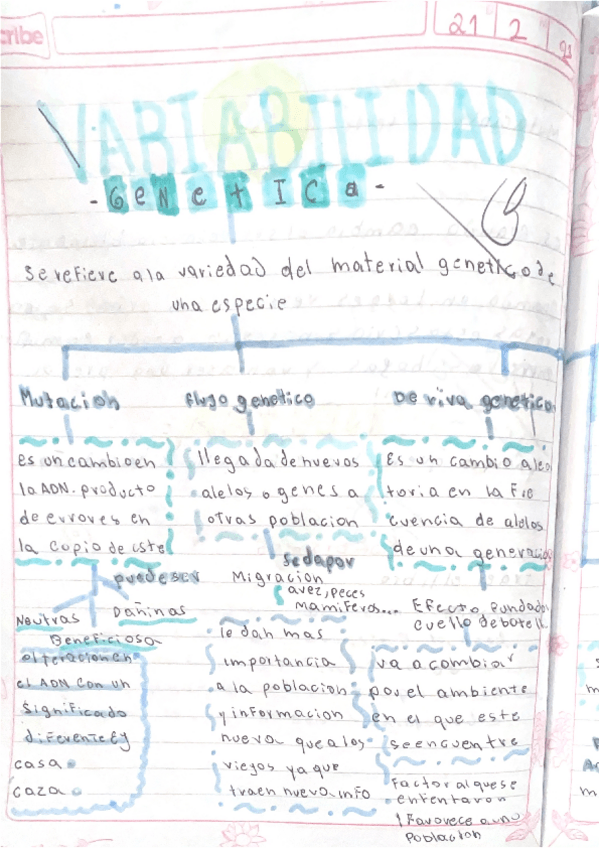 cribe
21 2
VARIABILIDAD
- GeNetICa -
se refiere a la variedad del material genetico de
una especie
Mutacion
flujo genetico
Deriva genetica
es un cambio en
la ADN. producto
de errores en
la copio de este
puede ser
Neutras
Dañinas
Beneficiosa
alteracion en
el ADN con un
significado
diferente Ej
casa
caza
llegada de nuevos
alelos o genes a
otras poblacion
se da por
Migracion
avez, peces
Mamiferos...
le dan mas
importancia
a la poblacion
y informacion
nueva que a los
viejos ya que
traen nuevo info
Es un cambio alea
toria en la fre
cuencia de alelos
de una generacion
Efecto, fundado
cuello de botell
va a cambiar
por el ambiente
en el que este
se encuentre
Factor al que se
enfentaron
Favorece a una
Poblacion